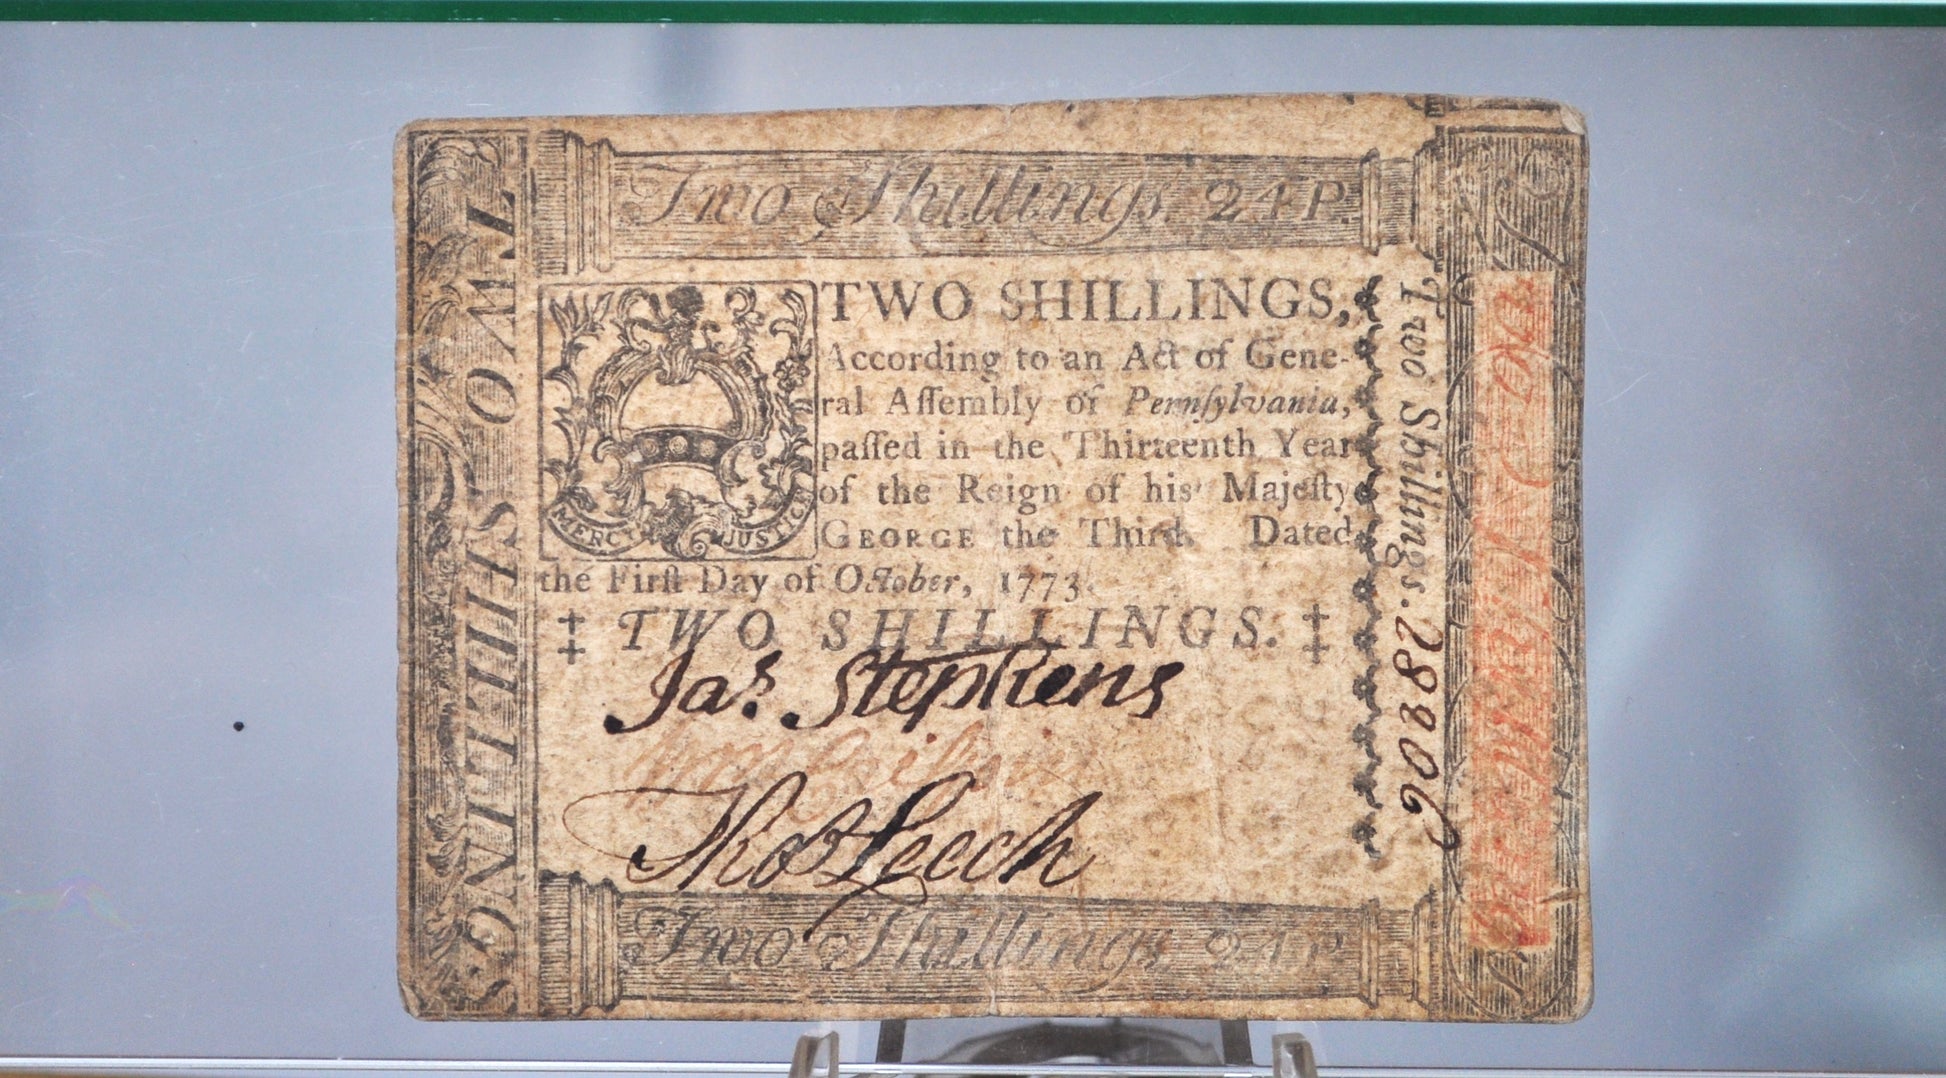 Two Shillings. 24 P.
TWO SHILLINGS
TWO SHILLINGS,
According to an Act of Gene-
ral Aſſembly of Pennſylvania,
paſſed in the Thirteenth Year
of the Reign of his Majeſty
GEORGE the Third. Dated
the Firſt Day of October, 1773.
MERCY JUSTICE
‡ TWO SHILLINGS. ‡
Jas. Stephens
Thos Leech
Two Shillings. 24 P.
Two Shillings.